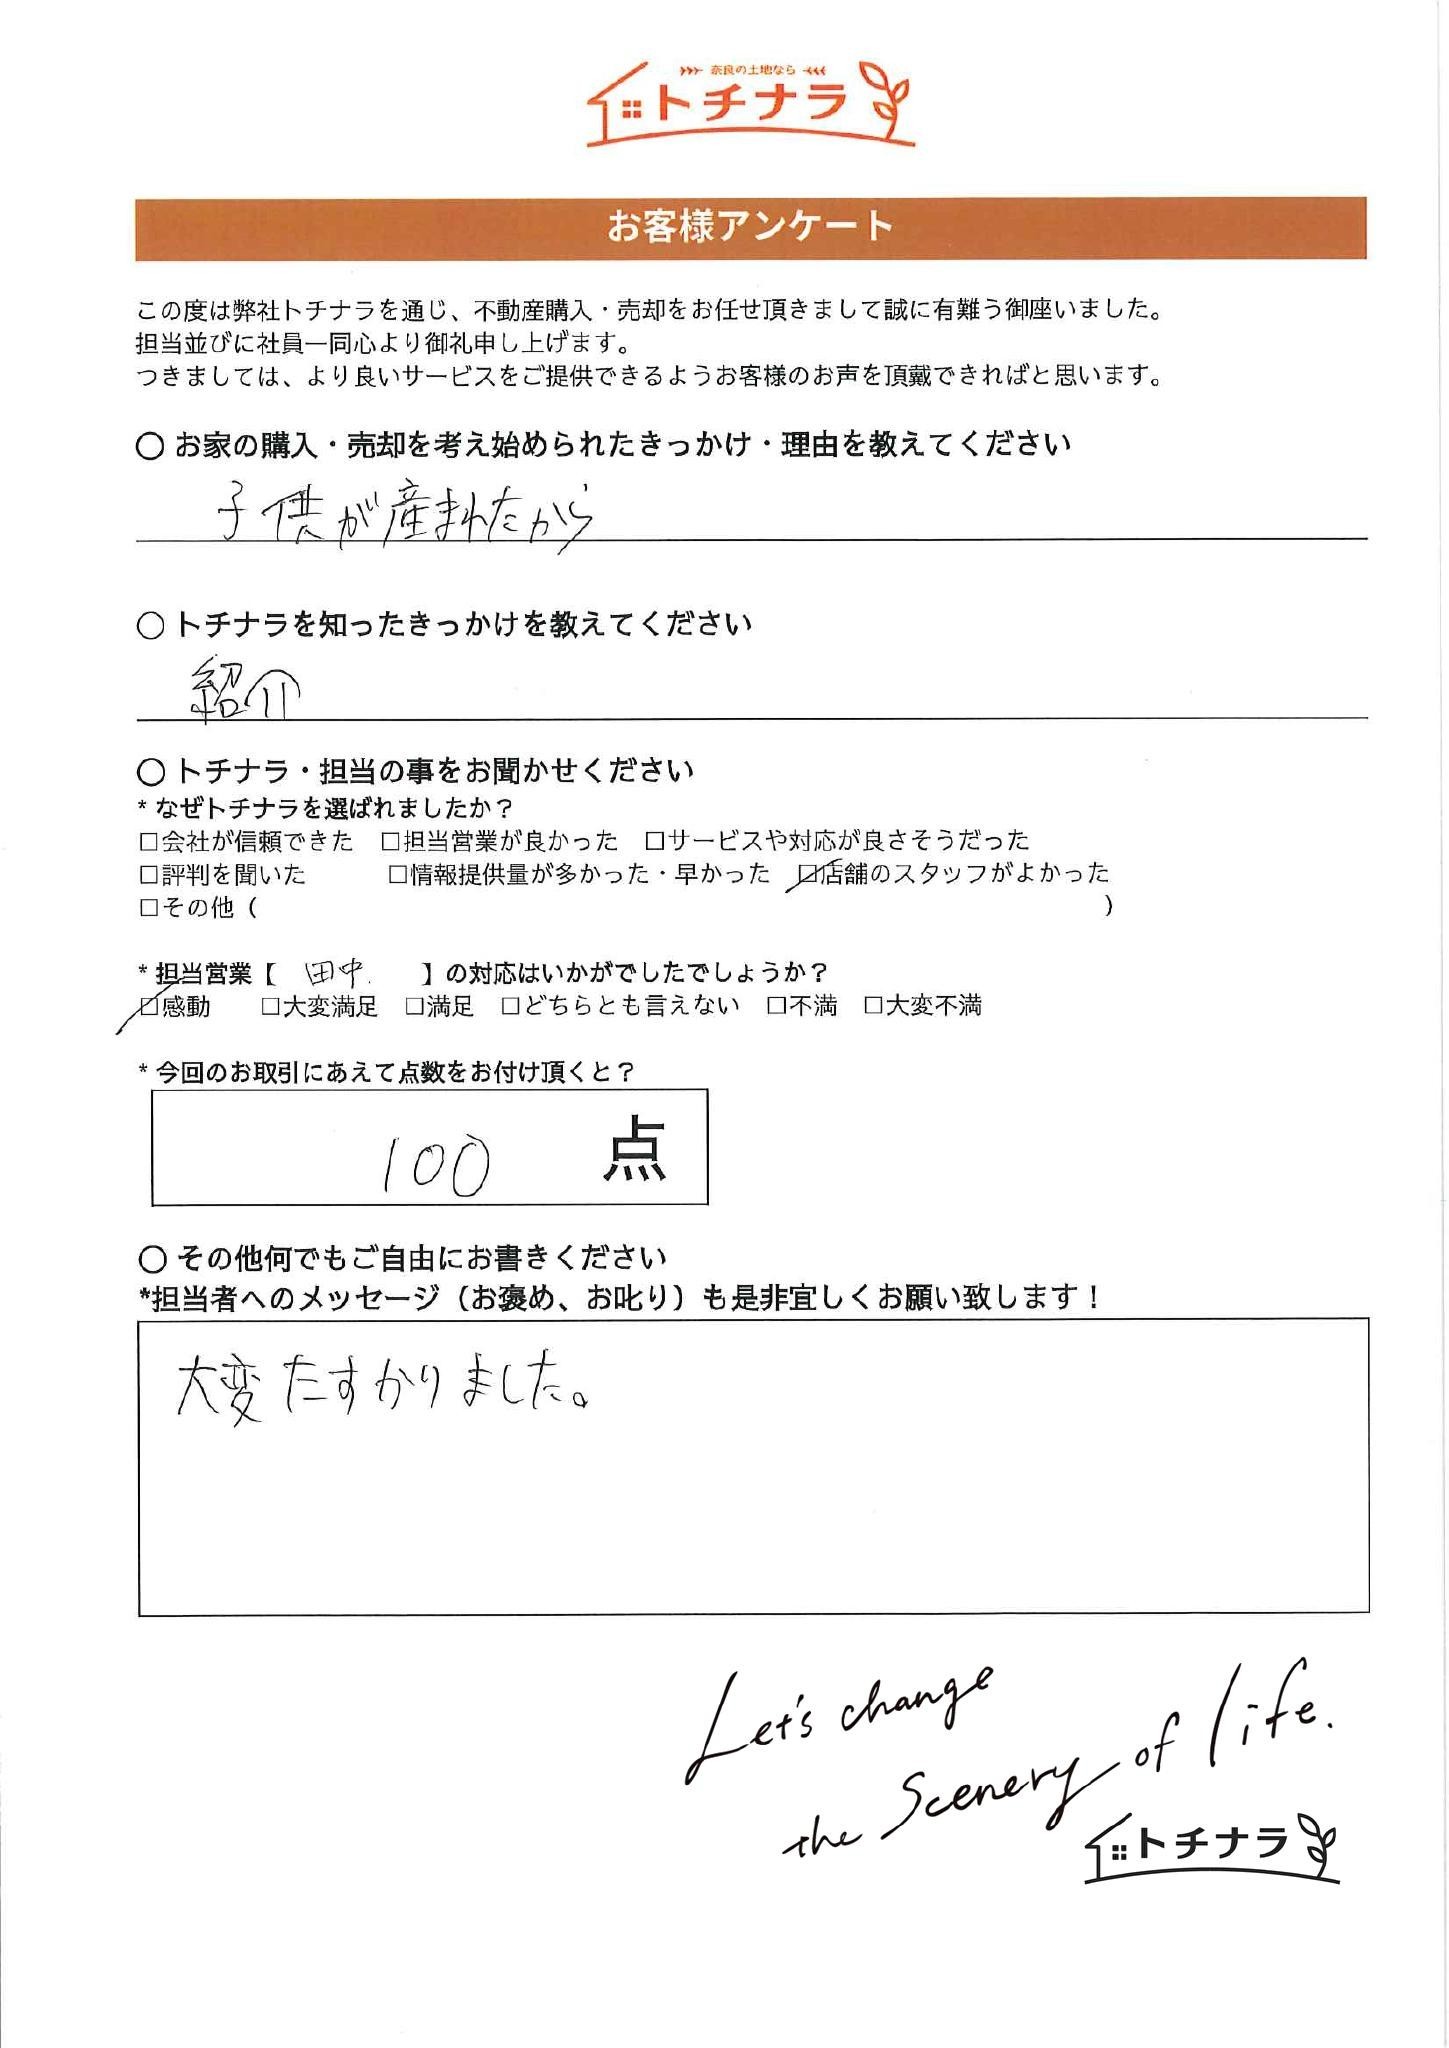 奈良の土地なら
トチナラ
お客様アンケート
この度は弊社トチナラを通じ、不動産購入・売却をお任せ頂きまして誠に有難う御座いました。
担当並びに社員一同心より御礼申し上げます。
つきましては、より良いサービスをご提供できるようお客様のお声を頂戴できればと思います。
○ お家の購入・売却を考え始められたきっかけ・理由を教えてください
子供が産まれたから
○ トチナラを知ったきっかけを教えてください
紹介
○ トチナラ・担当の事をお聞かせください
* なぜトチナラを選ばれましたか？
□会社が信頼できた □担当営業が良かった □サービスや対応が良さそうだった
□評判を聞いた □情報提供量が多かった・早かった □店舗のスタッフがよかった
□その他（ ）
* 担当営業【 田中. 】の対応はいかがでしたでしょうか？
□感動 □大変満足 □満足 □どちらとも言えない □不満 □大変不満
* 今回のお取引にあえて点数をお付け頂くと？
100 点
○ その他何でもご自由にお書きください
*担当者へのメッセージ（お褒め、お叱り）も是非宜しくお願い致します！
大変たすかりました。
Let's change
the Scenery of life.
トチナラ